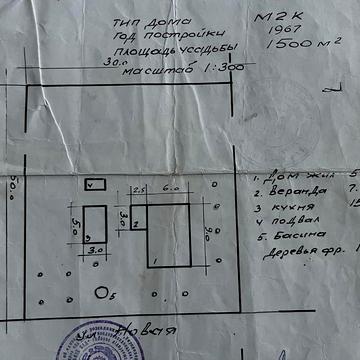 ТИП ДОМА М2К
ГОД ПОСТРОЙКИ 1967
ПЛОЩАДЬ УСАДЬБЫ 1500 м²
МАСШТАБ 1:300
30.0
50.0
4
2,5 6.0
5.0
3.0
2
9.0
3
3.0
1
5
1. ДОМ ЖИЛ 5
2. ВЕРАНДА 7.
3 КУХНЯ 15
4 ПОДВАЛ
5. БАСИНА
ДЕРЕВЬЯ ФР. 1
Ул. Новая